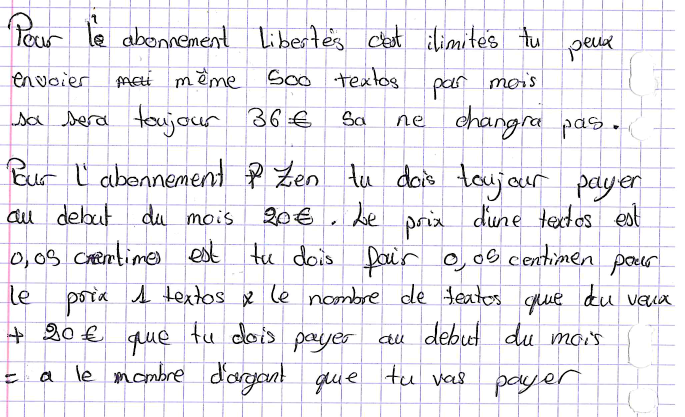 Pour l'abonnement Libertés c'est ilimités tu peux
envoier mai même 500 textos par mois
sa sera toujour 36 € sa ne changra pas.
Pour l'abonnement P Zen tu dois toujour payer
au debut du mois 20 €. Le prix d'une textos est
0,05 centimes est tu dois fair 0,05 centimen pour
le prix 1 textos x le nombre de textos que tu veux
+ 20 € que tu dois payer au debut du mois
= a le mombre d'argant que tu vas payer